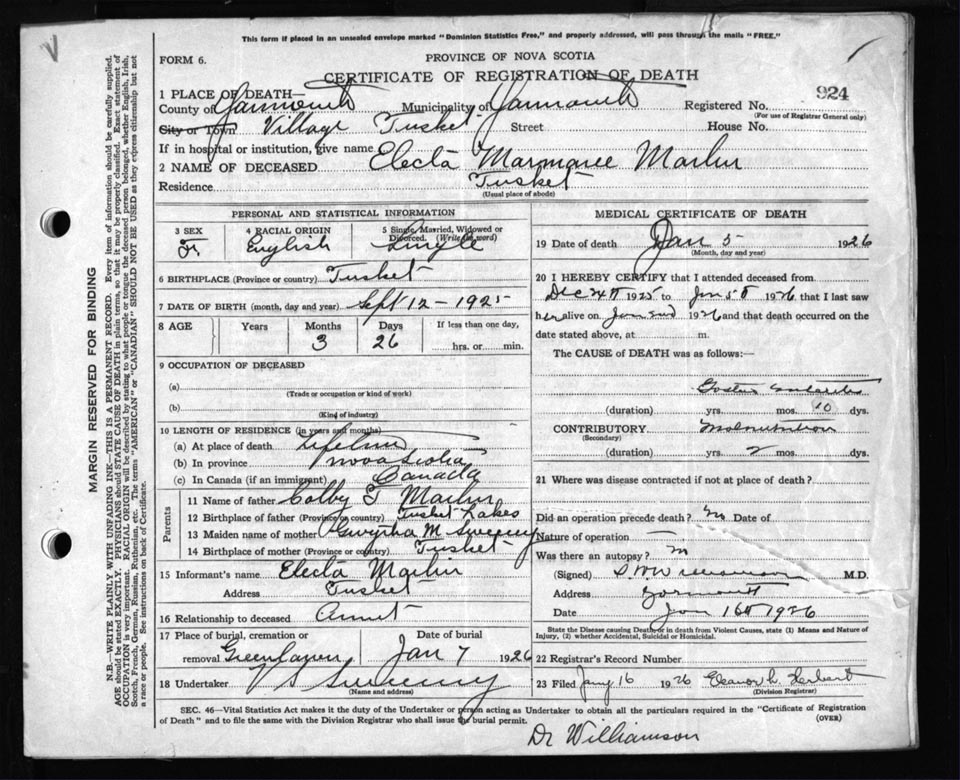 This form if placed in an unsealed envelope marked "Dominion Statistics Free," and properly addressed, will pass through the mails "FREE."
FORM 6.
PROVINCE OF NOVA SCOTIA
CERTIFICATE OF REGISTRATION OF DEATH
924
1 PLACE OF DEATH—
County of Yarmouth Municipality of Yarmouth Registered No.
(For use of Registrar General only)
City or Town Village Tusket Street House No.
If in hospital or institution, give name
2 NAME OF DECEASED Electa Marmaree Marlin
Residence Tusket
(Usual place of abode)
PERSONAL AND STATISTICAL INFORMATION
3 SEX 4 RACIAL ORIGIN 5 Single, Married, Widowed or Divorced. (Write the word)
F. English Single
6 BIRTHPLACE (Province or country) Tusket
7 DATE OF BIRTH (month, day and year) Sept 12-1925
8 AGE Years Months Days If less than one day,
3 26 hrs. or min.
9 OCCUPATION OF DECEASED
(a)
(Trade or occupation or kind of work)
(b)
(Kind of industry)
10 LENGTH OF RESIDENCE (in years and months)
(a) At place of death Lifetime
(b) In province Nova Scotia
(c) In Canada (if an immigrant) Canada
Parents
11 Name of father Colby T Marlin
12 Birthplace of father (Province or country) Tusket Lakes
13 Maiden name of mother M Sweeny
14 Birthplace of mother (Province or country) Tusket
15 Informant's name Electa Marlin
Address Tusket
16 Relationship to deceased Aunt
17 Place of burial, cremation or Date of burial
removal Greenlawn Jan 7 1926
18 Undertaker V S Sweeny
(Name and address)
MEDICAL CERTIFICATE OF DEATH
19 Date of death Jan 5 1926
(Month, day and year)
20 I HEREBY CERTIFY that I attended deceased from
Dec 24th 1925 to Jan 5th 1926 that I last saw
her alive on Jan 1926 and that death occurred on the
date stated above, at m.
The CAUSE OF DEATH was as follows:—
Gastro
(duration) yrs. mos. 10 dys.
CONTRIBUTORY Malnutrition
(Secondary)
(duration) yrs. 2 mos. dys.
21 Where was disease contracted if not at place of death?
Did an operation precede death? No Date of
Nature of operation —
Was there an autopsy? No
(Signed) Williamson M.D.
Address Yarmouth
Date Jan 16th 1926
State the Disease causing Death, or in death from Violent Causes, state (1) Means and Nature of
Injury, (2) whether Accidental, Suicidal or Homicidal.
22 Registrar's Record Number
23 Filed Jany 16 1926 Eleanor L. Herbert
(Division Registrar)
SEC. 46—Vital Statistics Act makes it the duty of the Undertaker or person acting as Undertaker to obtain all the particulars required in the "Certificate of Registration
of Death" and to file the same with the Division Registrar who shall issue the burial permit.
(OVER)
Dr Williamson
MARGIN RESERVED FOR BINDING
N.B.—WRITE PLAINLY WITH UNFADING INK—THIS IS A PERMANENT RECORD. Every item of information should be carefully supplied.
AGE should be stated EXACTLY. PHYSICIANS should STATE CAUSE OF DEATH in plain terms, so that it may be properly classified. Exact statement of
OCCUPATION is very important. RACIAL ORIGIN will be described by stating to what people or tongue the deceased person belonged, whether English, Irish,
Scotch, French, German, Russian, Ruthenian, etc. The terms "AMERICAN" or "CANADIAN" SHOULD NOT BE USED as they express citizenship but not
a race or people. See instructions on back of Certificate.